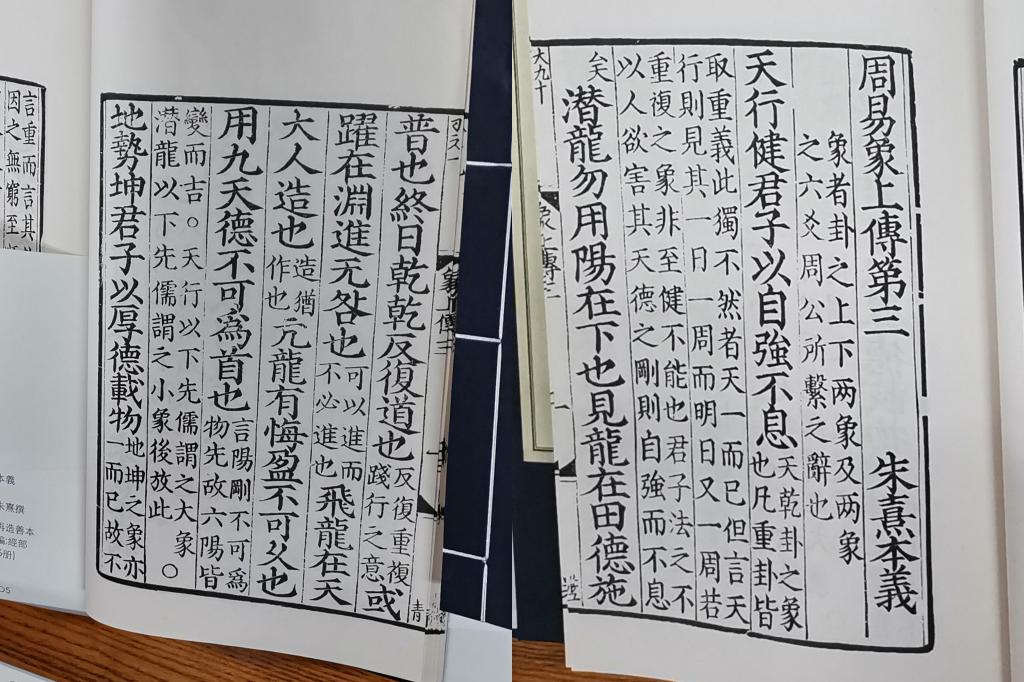 周易象上傳第三 朱熹本義
象者卦之上下两象及两象
之六爻周公所繫之辭也
天行健君子以自強不息天乾卦之象也凡重卦皆
取重義此獨不然者天一而已但言天
行則見其一日一周而明日又一周若
重復之象非至健不能也君子法之不
以人欲害其天德之剛則自強而不息
矣 潜龍勿用陽在下也見龍在田德施
大九十
象上傳三
普也終日乾乾反復道也反復重複踐行之意或
躍在淵進无咎也可以進而不必進也飛龍在天
大人造也造猶作也亢龍有悔盈不可久也
用九天德不可為首也言陽剛不可為物先故六陽皆
變而吉。天行以下先儒謂之大象
潜龍以下先儒謂之小象後放此〇
地勢坤君子以厚德載物地坤之象亦一而已故不
青
言重而言其
因之無窮至
本義
朱熹撰
再造善本
經部
册)
05